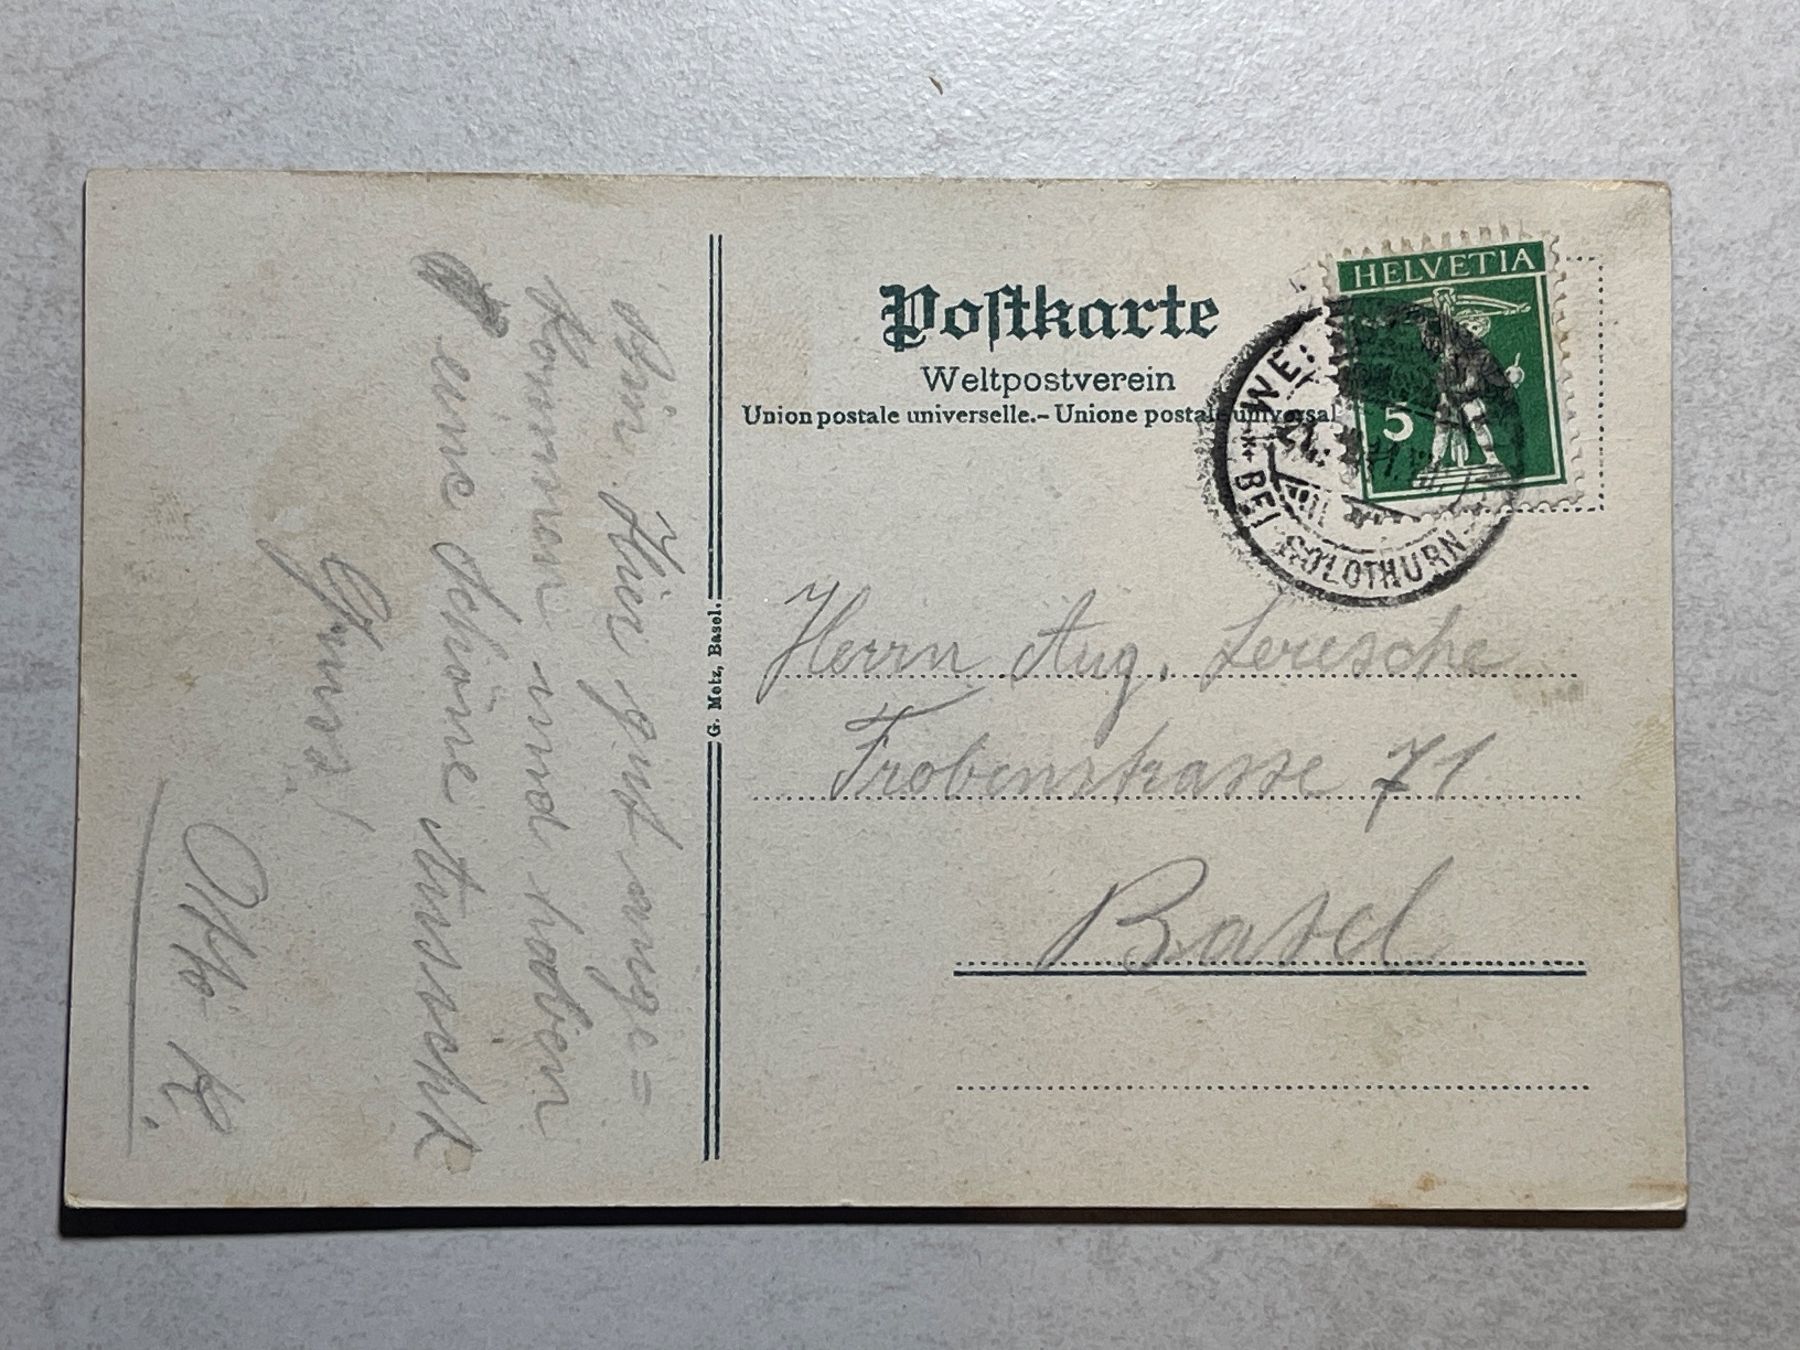 Postkarte
Weltpostverein
Union postale universelle.– Unione postale universal
HELVETIA
5
BEI SOLOTHURN
G. Metz, Basel.
Herrn Aug. Leresche
Frobenstrasse 71
Basel
Bin hier gut ange=
kommen und haben
eine schöne Aussicht
Gruss!
Otto K.